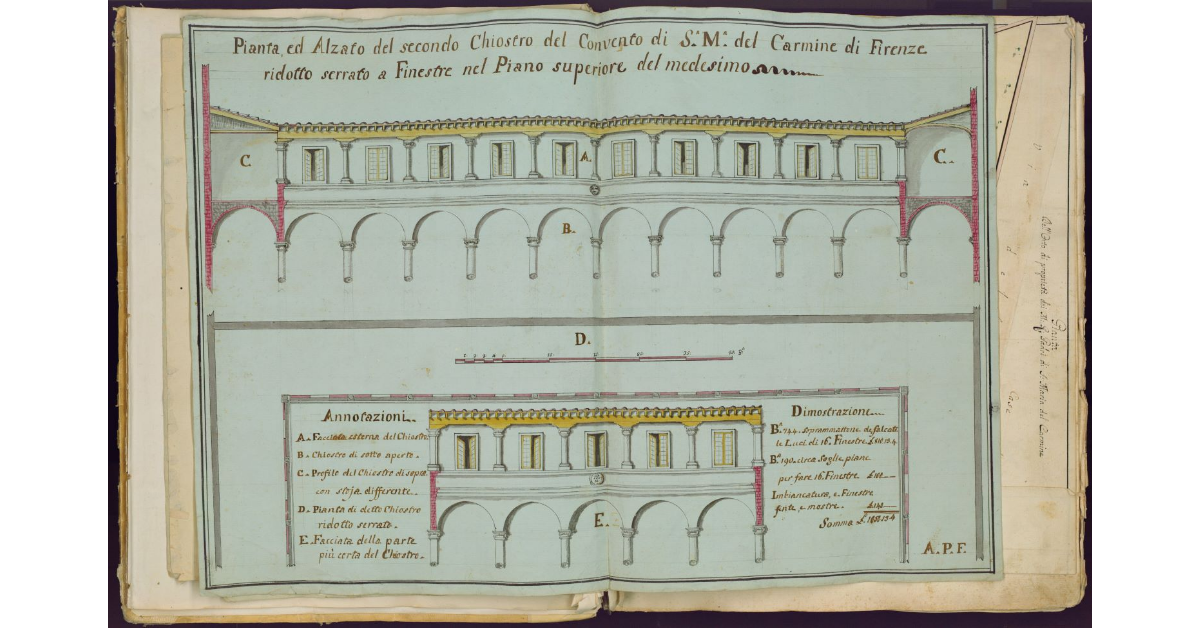 Pianta, ed Alzato del secondo Chiostro del Convento di S.ª M.ª del Carmine di Firenze
ridotto serrato a Finestre nel Piano superiore del medesimo
C.
A.
C.
B.
D.
Annotazioni
A. Facciata esterna del Chiostro
B. Chiostro di sotto aperto.
C. Profilo del Chiostro di sopra
con stoja differente.
D. Pianta di detto Chiostro
ridotto serrato.
E. Facciata della parte
più corta del Chiostro.
E.
Dimostrazione
B.ª 744. soprammattone
le Luci di 16. Finestre
B.ª 190. circa Soglie piane
per fare 16. Finestre
Imbiancatura, e Finestre
finte, e mostre.
Somma
A. P. F.
Pianta